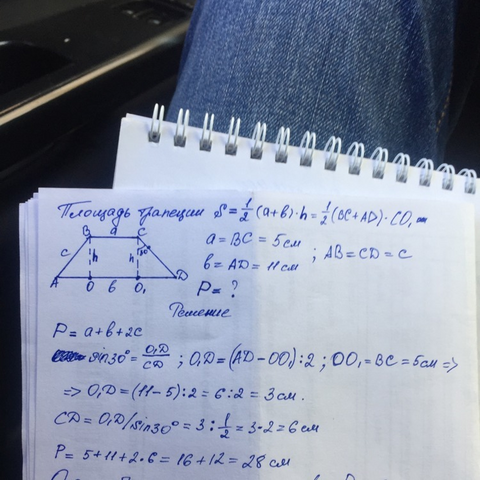 Площадь трапеции S = 1/2 (a+b)·h = 1/2 (BC+AD)·CO₁
B a C
c h h 30°
A O b O₁ D
a = BC = 5 см
b = AD = 11 см ; AB = CD = C
P = ?
Решение
P = a+b+2c
sin30° = O₁D/CD ; O₁D = (AD-OO₁):2 ; OO₁ = BC = 5 см =>
=> O₁D = (11-5):2 = 6:2 = 3 см.
CD = O₁D/sin30° = 3 : 1/2 = 3·2 = 6 см
P = 5+11+2·6 = 16+12 = 28 см